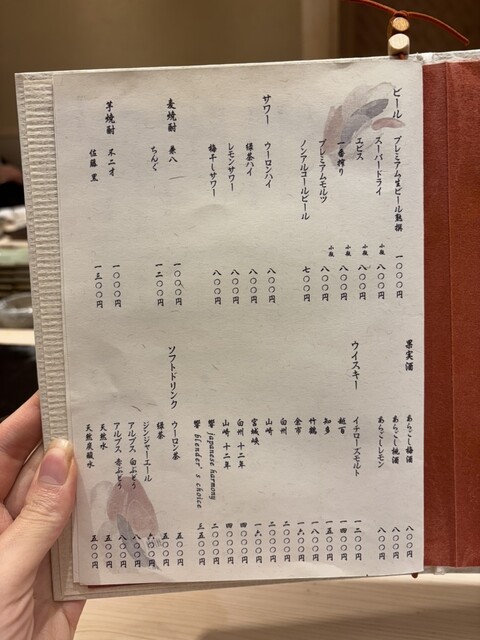 ビール
プレミアム生ビール 熟撰 一〇〇〇円
スーパードライ 小瓶 八〇〇円
エビス 小瓶 八〇〇円
一番搾り 小瓶 八〇〇円
プレミアムモルツ 小瓶 八〇〇円
ノンアルコールビール 七〇〇円
サワー
ウーロンハイ 八〇〇円
緑茶ハイ 八〇〇円
レモンサワー 八〇〇円
梅干しサワー 八〇〇円
麦焼酎
兼八 一〇〇〇円
ちんぐ 一二〇〇円
芋焼酎
不二才 一〇〇〇円
佐藤 黒 一三〇〇円
果実酒
あらごし梅酒 八〇〇円
あらごし桃酒 八〇〇円
あらごしレモン 八〇〇円
ウイスキー
イチローズモルト 一二〇〇円
越百 一四〇〇円
知多 一五〇〇円
竹鶴 一八〇〇円
余市 一六〇〇円
白州 二〇〇〇円
山崎 二〇〇〇円
宮城峡 一六〇〇円
白州 十二年 四〇〇〇円
山崎 十二年 四〇〇〇円
響 japanese harmony 二〇〇〇円
響 blender's choice 三五〇〇円
ソフトドリンク
ウーロン茶 五〇〇円
緑茶 五〇〇円
ジンジャーエール 六〇〇円
アルプス 白ぶどう 八〇〇円
アルプス 赤ぶどう 八〇〇円
天然水 五〇〇円
天然炭酸水 五〇〇円